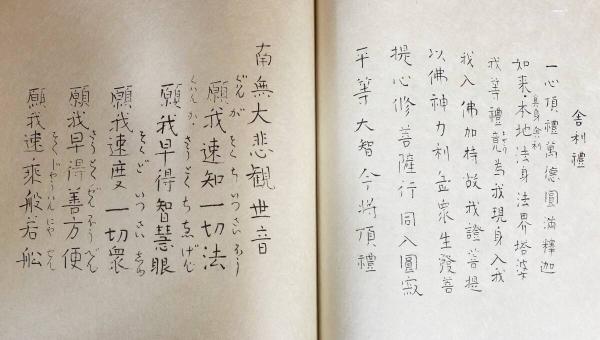 舎利禮
一心頂禮萬德圓滿釋迦
真身舎利
如来・本地法身法界塔婆
我等禮 當我現身入我
我入佛加持故我證菩提
以佛神力利益衆生發菩
提心修菩薩行同入圓寂
平等大智今将頂禮
南無大悲観世音
そくち いつさい
願我速知一切法
さうとくちゑげん
願我早得智慧眼
そくど いつさい
願我速度一切衆
さうとくぜん べん
願我早得善方便
はんにやせん
願我速乘般若舩